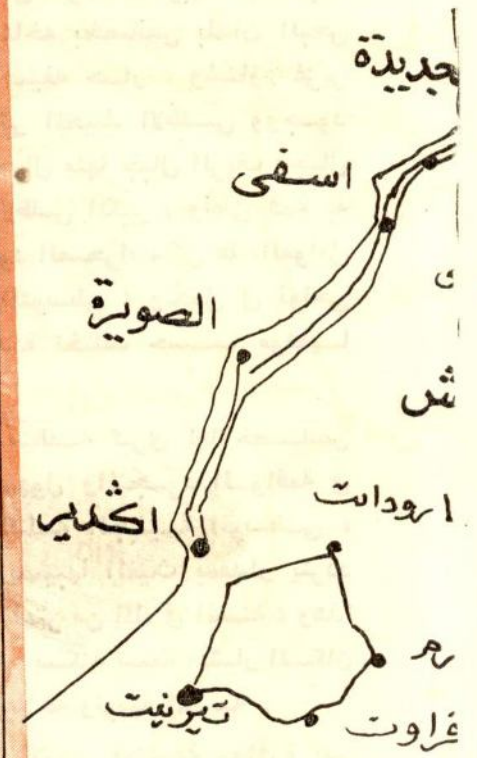 جديدة
اسفى
ت
الصويرة
ش
ارودانت
اڭدير
رم
تيزنيت
فراوت